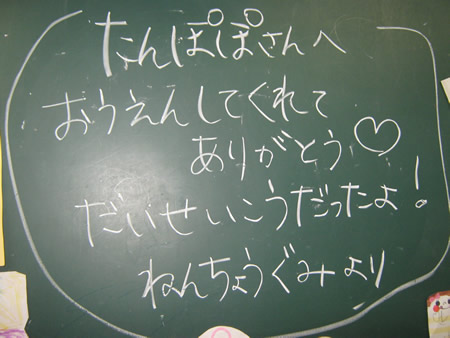 たんぽぽさんへ
おうえんしてくれて
ありがとう♡
だいせいこうだったよ!
ねんちょうぐみより